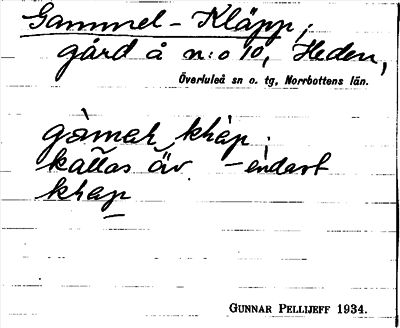 Gammel-Kläpp,
gård å n:o 10, Heden,
Överluleå sn o. tg, Norrbottens län.
gàmah khàp.
kallas äv. - endast
khap
GUNNAR PELLIJEFF 1934.